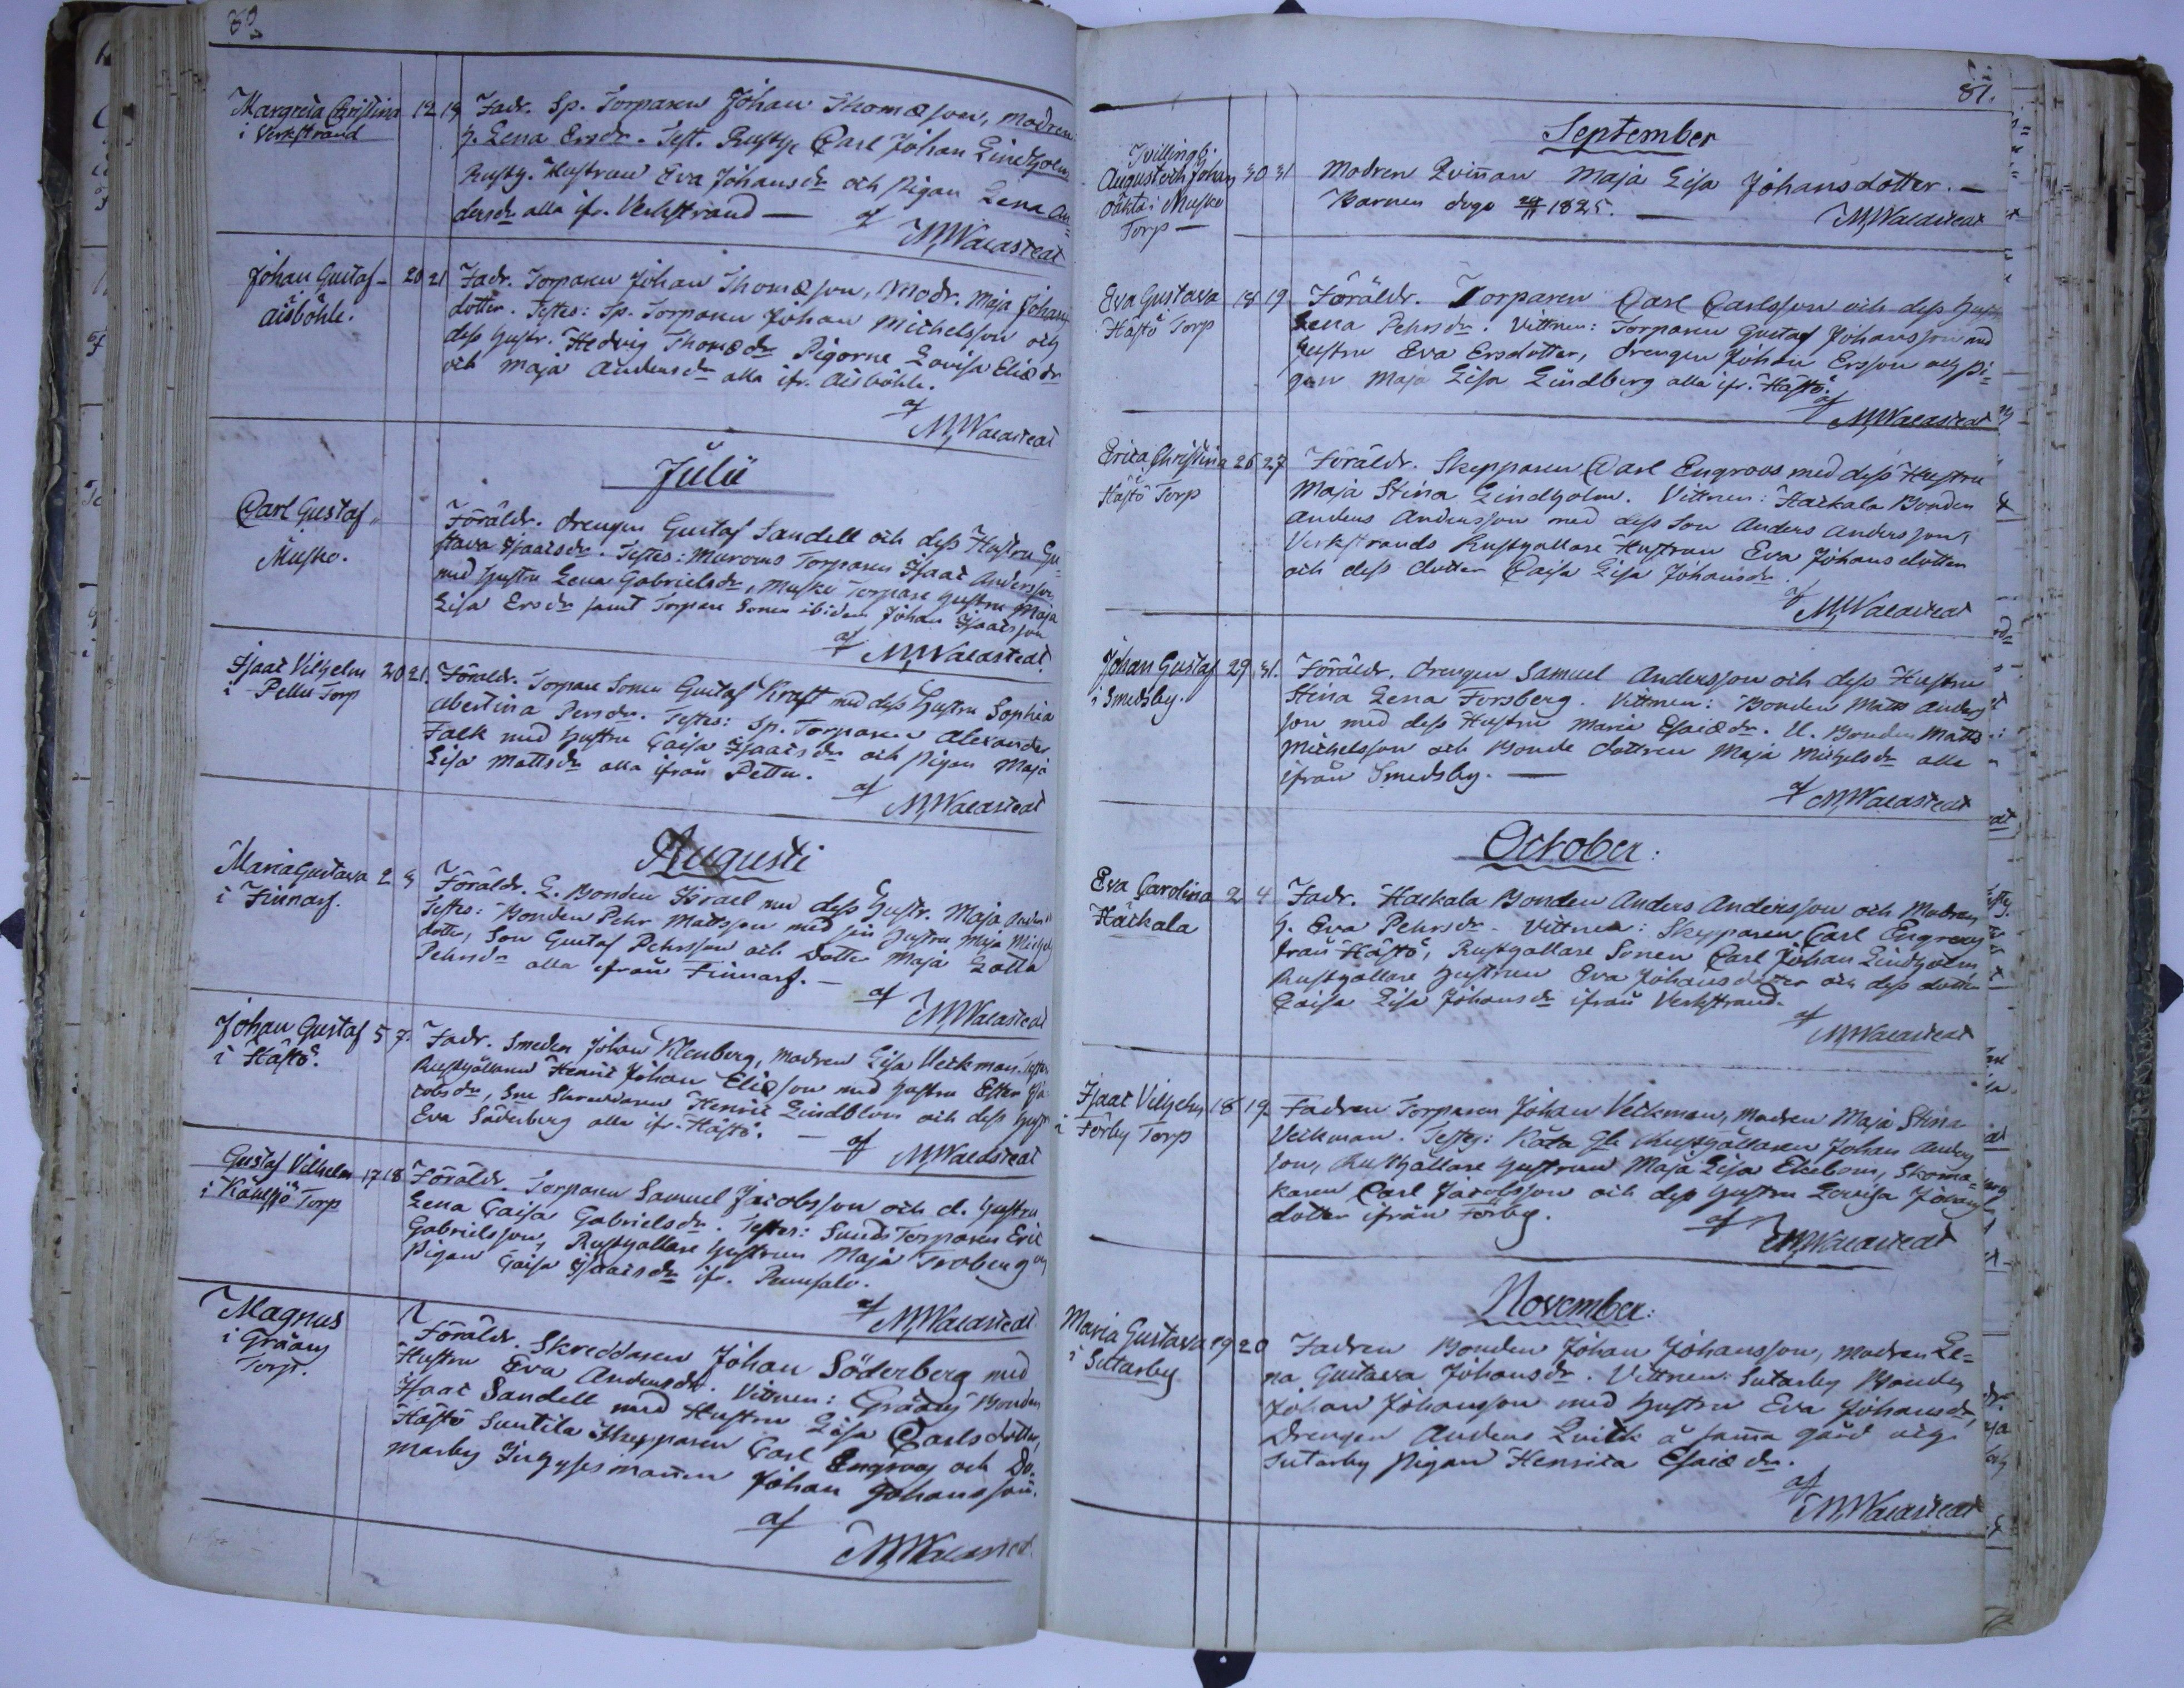 Margreta Christina 12 19 Fadr. Sp. Torparen Johan Thomæson, modren
i Verkstrand h. Lena Ersdr. Test. Rusth. Carl Johan Lindholm
Rusth. Hustrun Eva Johansdr och Pigan Lena An=
dersdr alla ifr. Verkstrand — af
M, Walastedt
Johan Gustaf 20 21 Fadr. Torparen Johan Thomæson, Modr. Maja Johans
Aisböhle. dotter. Testes: Sp. Torparen Johan Michelsson och
dess Hustr. Hedvig Thomædr Pigorne Lovisa Eliædr
och Maja Andersdr alla ifr. Aisböhle.
af
M, Walastedt
Julii
Carl Gustaf Föräldr. drengen Gustaf Sandell och dess Hustru Gu=
Musko. stava Isaacsdr. Testes: Torparen Isaac Andersson
med Hustru Lena Gabrielsdr, Torpare Hustru Maja
Lisa Ersdr samt Torpare Sonen ibidem Johan Isaacsson
af M, Walastedt
Isaac Vilhelm 20 21. Föräldr. Torpare Sonen Gustaf Kraft med dess Hustru Sophia
i Torp Albertina Persdr. Testes: Sp. Torparen Alexander
Falk med Hustru Caisa Isaacsdr och Pigan Maja
Lisa Mattsdr alla ifrån
af
M, Walastedt
Augusti
Maria Gustava 2 3 Föräldr. Bonden Israel med dess Hustr. Maja
i Finnarf. Testes: Bonden Pehr Mattsson med sin Hustru Maja Michels
dotter, Son Gustaf Pehrsson och Dotter Maja Lotta
Pehrsdr alla ifrån Finnarf. — af
M, Walastedt
Johan Gustaf 5 7. Fadr. Smeden Johan Klenberg, modren Lisa Veckman. Testes
i Hästö. Rusthållaren Henric Johan Eliæson med Hustru Ester Ja
cobsdr, Henric Lindblom och dess Hustr
Eva Söderberg alla ifr. Hästö. — af
M, Walastedt
Gustaf Vilhelm 17 18 Föräldr. Torparen Samuel Jacobsson och d. Hustru
i Torp Lena Caisa Gabrielsdr. Testes: Sunds Torparen Eric
Gabrielsson, Rusthållare Hustrun Maja Troberg och
Pigan Caisa Isaacsdr ifr.
af M, Walastedt
Magnus Föräldr. Skreddaren Johan Söderberg med
i Torp. Hustru Eva Andersdr. Vittnen: Bonden
Isaac Sandell med Hustru Lisa Carlsdotter,
Hästö Skepparen Carl Engroos och Do=
marby Inhysesmannen Johan Johansson.
af
M, Walastedt
81.
September
Tvillingb.
August och Johan 30 31 Modren Qvinnan Maja Lisa Johansdotter. —
oäkta i Musko Barnen dogo 1825. —
Torp — M, Walastedt
Eva Gustava 18 19 Föräldr. Torparen Carl Carlsson och dess Hustr
Hästö Torp Lena Pehrsdr. Vittnen: Torparen Gustaf Johansson med
Hustru Eva Ersdotter, drengen Johan Ersson och Pi=
gan Maja Lisa Lindberg alla ifr. Hästö.
af
M, Walastedt
Erica Christina 26 27 Föräldr. Skepparen Carl Engroos med dess Hustru
Hästö Torp Maja Stina Lindholm. Vittnen: Haikala Bonden
Anders Andersson med dess Son Anders Andersson,
Verkstrands Rusthållare Hustrun Eva Johansdotter
och dess dotter Caisa Lisa Johansdr.
af
M, Walastedt
Johan Gustaf 29 31. Föräldr. drengen Samuel Andersson och dess Hustru
i Smedsby. Stina Lena Forsberg. Vittnen: Bonden Matts Anders
son med dess Hustru Maria Esaiædr. U. Bonden Matts
Michelsson och Bonde dottren Maja Michelsdr alla
ifrån Smedsby. —
af M, Walastedt
October.
Eva Carolina 2 4 Fadr. Haikala Bonden Anders Andersson och Modren
Haikala h. Eva Pehrsdr. Vittnen: Skepparen Carl Engroos
från Hästö, Rusthållare Sonen Carl Johan Lindholm,
Rusthållare Hustrun Eva Johansdotter och dess dotter
Caisa Lisa Johansdr ifrån Verkstrand.
af
M, Walastedt
Isaac Vilhelm 18 19 Fadren Torparen Johan Veckman, Modren Maja Stina
i Förby Torp Veckman. Testes: Rusthållaren Johan Anders
son, Rusthållare Hustrun Maja Lisa Ekebom, Skoma=
karen Carl Jacobsson och dess Hustru Lovisa Johans
dotter ifrån Förby. af
M, Walastedt
November:
Maria Gustava 19 20 Fadren Bonden Johan Johansson, modren Le=
i Sutarby na Gustava Johansdr. Vittnen: Sutarby Bonden
Johan Johansson med Hustru Eva Johansdr,
Drengen Anders Qvick å samma gård och
Sutarby Pigan Henrica Esaiædr.
af
M, Walastedt